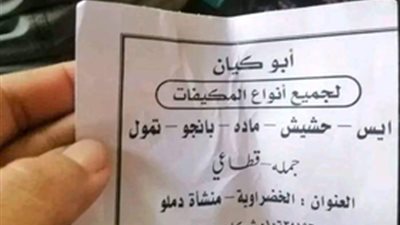 أبو كيان
لجميع أنواع المكيفات
ايس - حشيش - ماده - بانجو - تمول
جمله - قطاعي
العنوان : الخضراوية - منشاة دملو